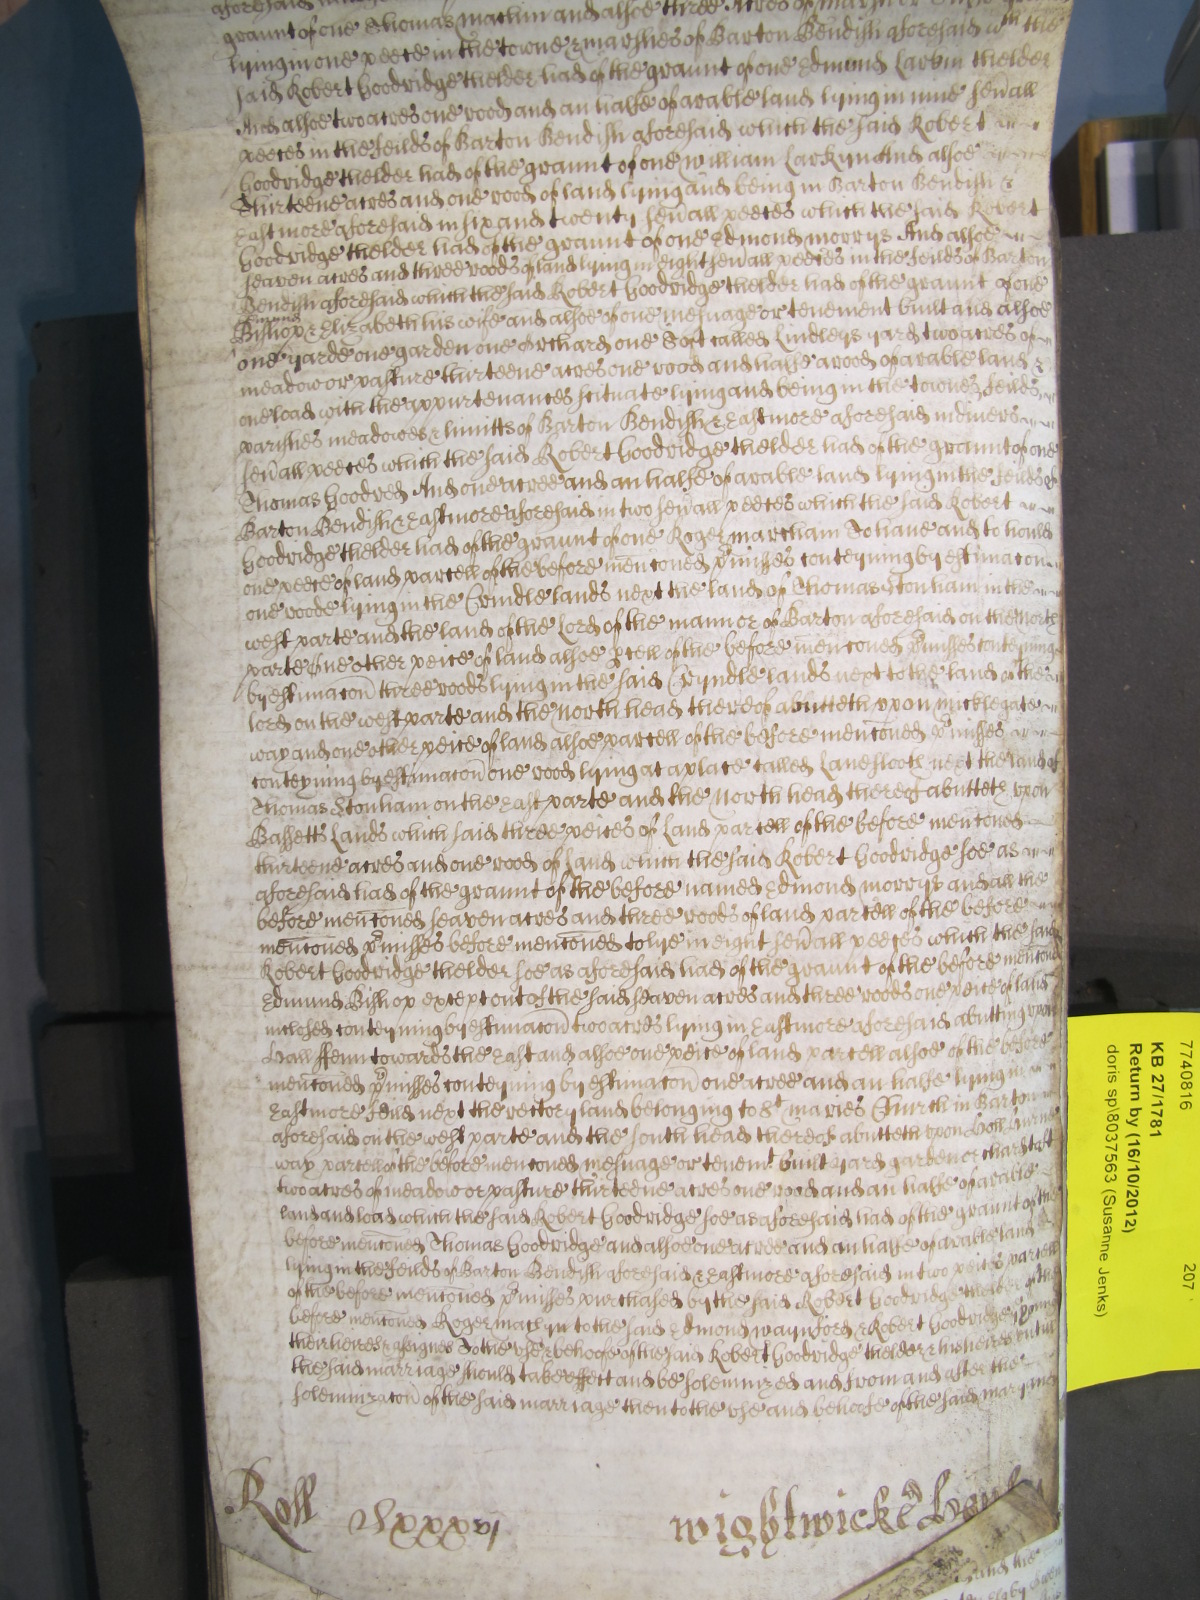 graunt of one Thomas Machin and alsoe three Acres of
lying in one peece in the towne & marshes of Barton Bendish aforesaid wch the
said Robert Goodridge thelder had of the graunt of one Edmund Larkin thelder
And alsoe two acres one rood and an halfe of arable land lying in nine seuall
peeces in the feilds of Barton Bendish aforesaid which the said Robert
Goodridge thelder had of the graunt of one William Larkyn And alsoe
Thirteene acres and one rood of land lying and being in Barton Bendish &
Eastmore aforesaid in six and twenty seuall peeces which the said Robert
Goodridge thelder had of the graunt of one Edmond Morrys And alsoe
seaven acres and three roods of land lying in eight seuall peeces in the feilds of Barton
Bendish aforesaid which the said Robert Goodridge thelder had of the graunt of one
Edmund
Bishop & Elizabeth his wife and alsoe of one mesuage or tenement built and alsoe
one yarde one garden one orchard one Toft called Lindleys yard two acres of
meadow or pasture thirteene acres one rood and halfe a rood of arable land &
one load with the appurtenances scituate lying and being in the townes feilds
parishes meadowes & limitts of Barton Bendish & Eastmore aforesaid in divers
seuall peeces which the said Robert Goodridge thelder had of the graunt of one
Thomas Goodred And one acree and an halfe of arable land lying in the feilds of
Barton Bendish & Eastmore aforesaid in two seuall peeces which the said Robert
Goodridge thelder had of the graunt of one Roger Martham To have and to hould
one peece of land parcell of the before menconed pmisses conteyning by estimacon
one roode lying in the Crindle lands next the land of Thomas Stonham in the
west parte and the land of the Lord of the mannor of Barton aforesaid on the North
parte One other peice of land alsoe pcell of the before menconed pmisses conteyning
by estimacon three roods lying in the said Cryndle lands next to the land of the
lord on the west parte and the North head thereof abutteth upon Micklegate
way and one other peice of land alsoe parcell of the before menconed pmisses
conteyning by estimacon one rood lying at a place called Landslooth next the land of
Thomas Stonham on the East parte and the North head thereof abutteth upon
Bassetts Lands which said three peices of Land parcell of the before menconed
thirteene acres and one rood of Land which the said Robert Goodridge soe as
aforesaid had of the graunt of the before named Edmond Morrys and all the
before menconed seaven acres and three roods of land parcell of the before
menconed pmisses before menconed to lye in eight seuall peeces which the said
Robert Goodridge thelder soe as aforesaid had of the graunt of the before menconed
Edmund Bishop except out of the said seaven acres and three roods one peice of land
inclosed conteyning by estimacon two acres lying in Eastmore aforesaid abutting upon
Hall ffenn towards the East and alsoe one peice of land parcell alsoe of the before
menconed pmisses conteyning by estimacon one acree and an halfe lying in
Eastmore feild next the rectory land belonging to St Maries Church in Barton
aforesaid on the west parte and the south head thereof abutteth upon
way parcell of the before menconed mesuage or tenemt built yard garden orchard toft
two acres of meadow or pasture thirteene acres one rood and an halfe of arable
land and load which the said Robert Goodridge soe as aforesaid had of the graunt of the
before menconed Thomas Goodridge and alsoe one acree and an halfe of arable land
lying in the feilds of Barton Bendish aforesaid & Eastmore aforesaid in two peices parcell
of the before menconed pmisses purchased by the said Robert Goodridge thelder of the
before menconed Roger Machyn to the said Edmond Waynford & Robert Goodridge ye young
their heires & assignes To the use & behoofe of the said Robert Goodridge thelder & his heires untill
the said marriage should take effect and be solemnized and from and after the
solemnizacon of the said marriage then to the use and behoofe of the said
Roll
Wightwicke
7740816
207
KB 27/1781
Return by (16/10/2012)
doris sp\8037563 (Susanne Jenks)